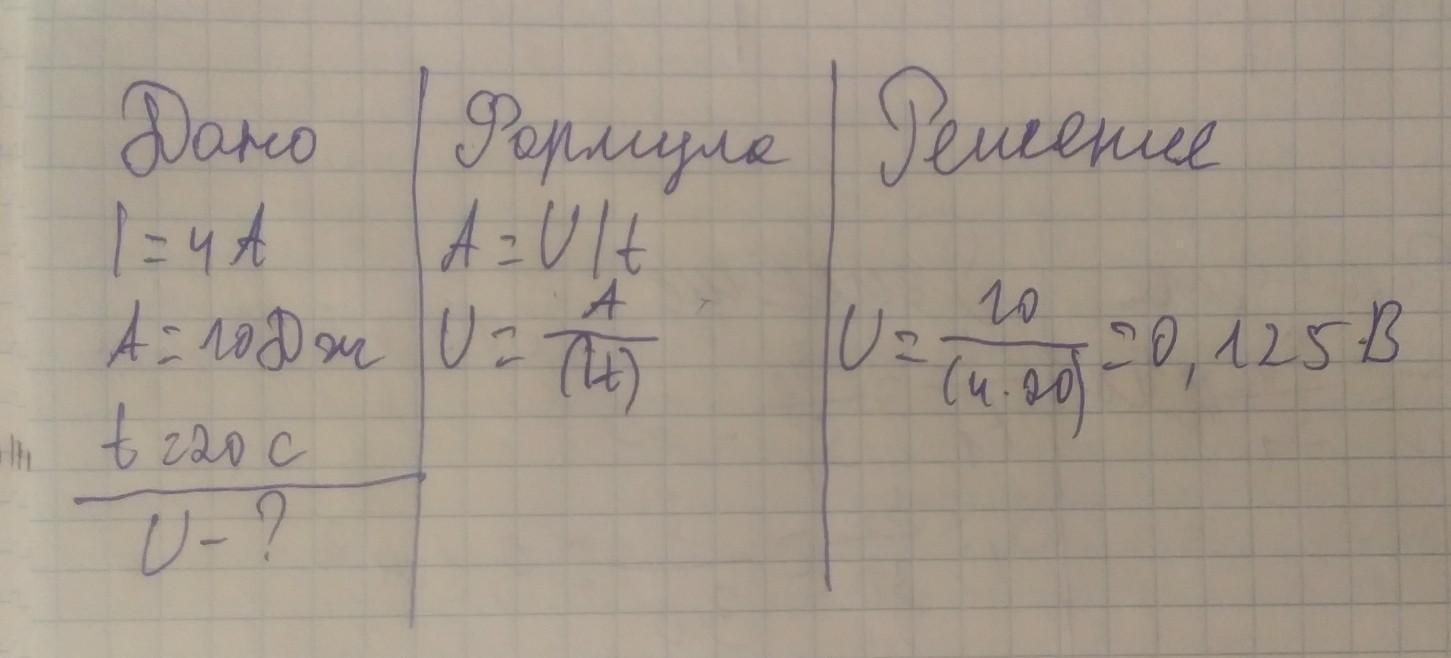 Дано
I = 4 A
A = 10 Дж
t = 20 с
U - ?
Формула
A = UIt
U = A / (It)
Решение
U = 10 / (4 · 20) = 0,125 В